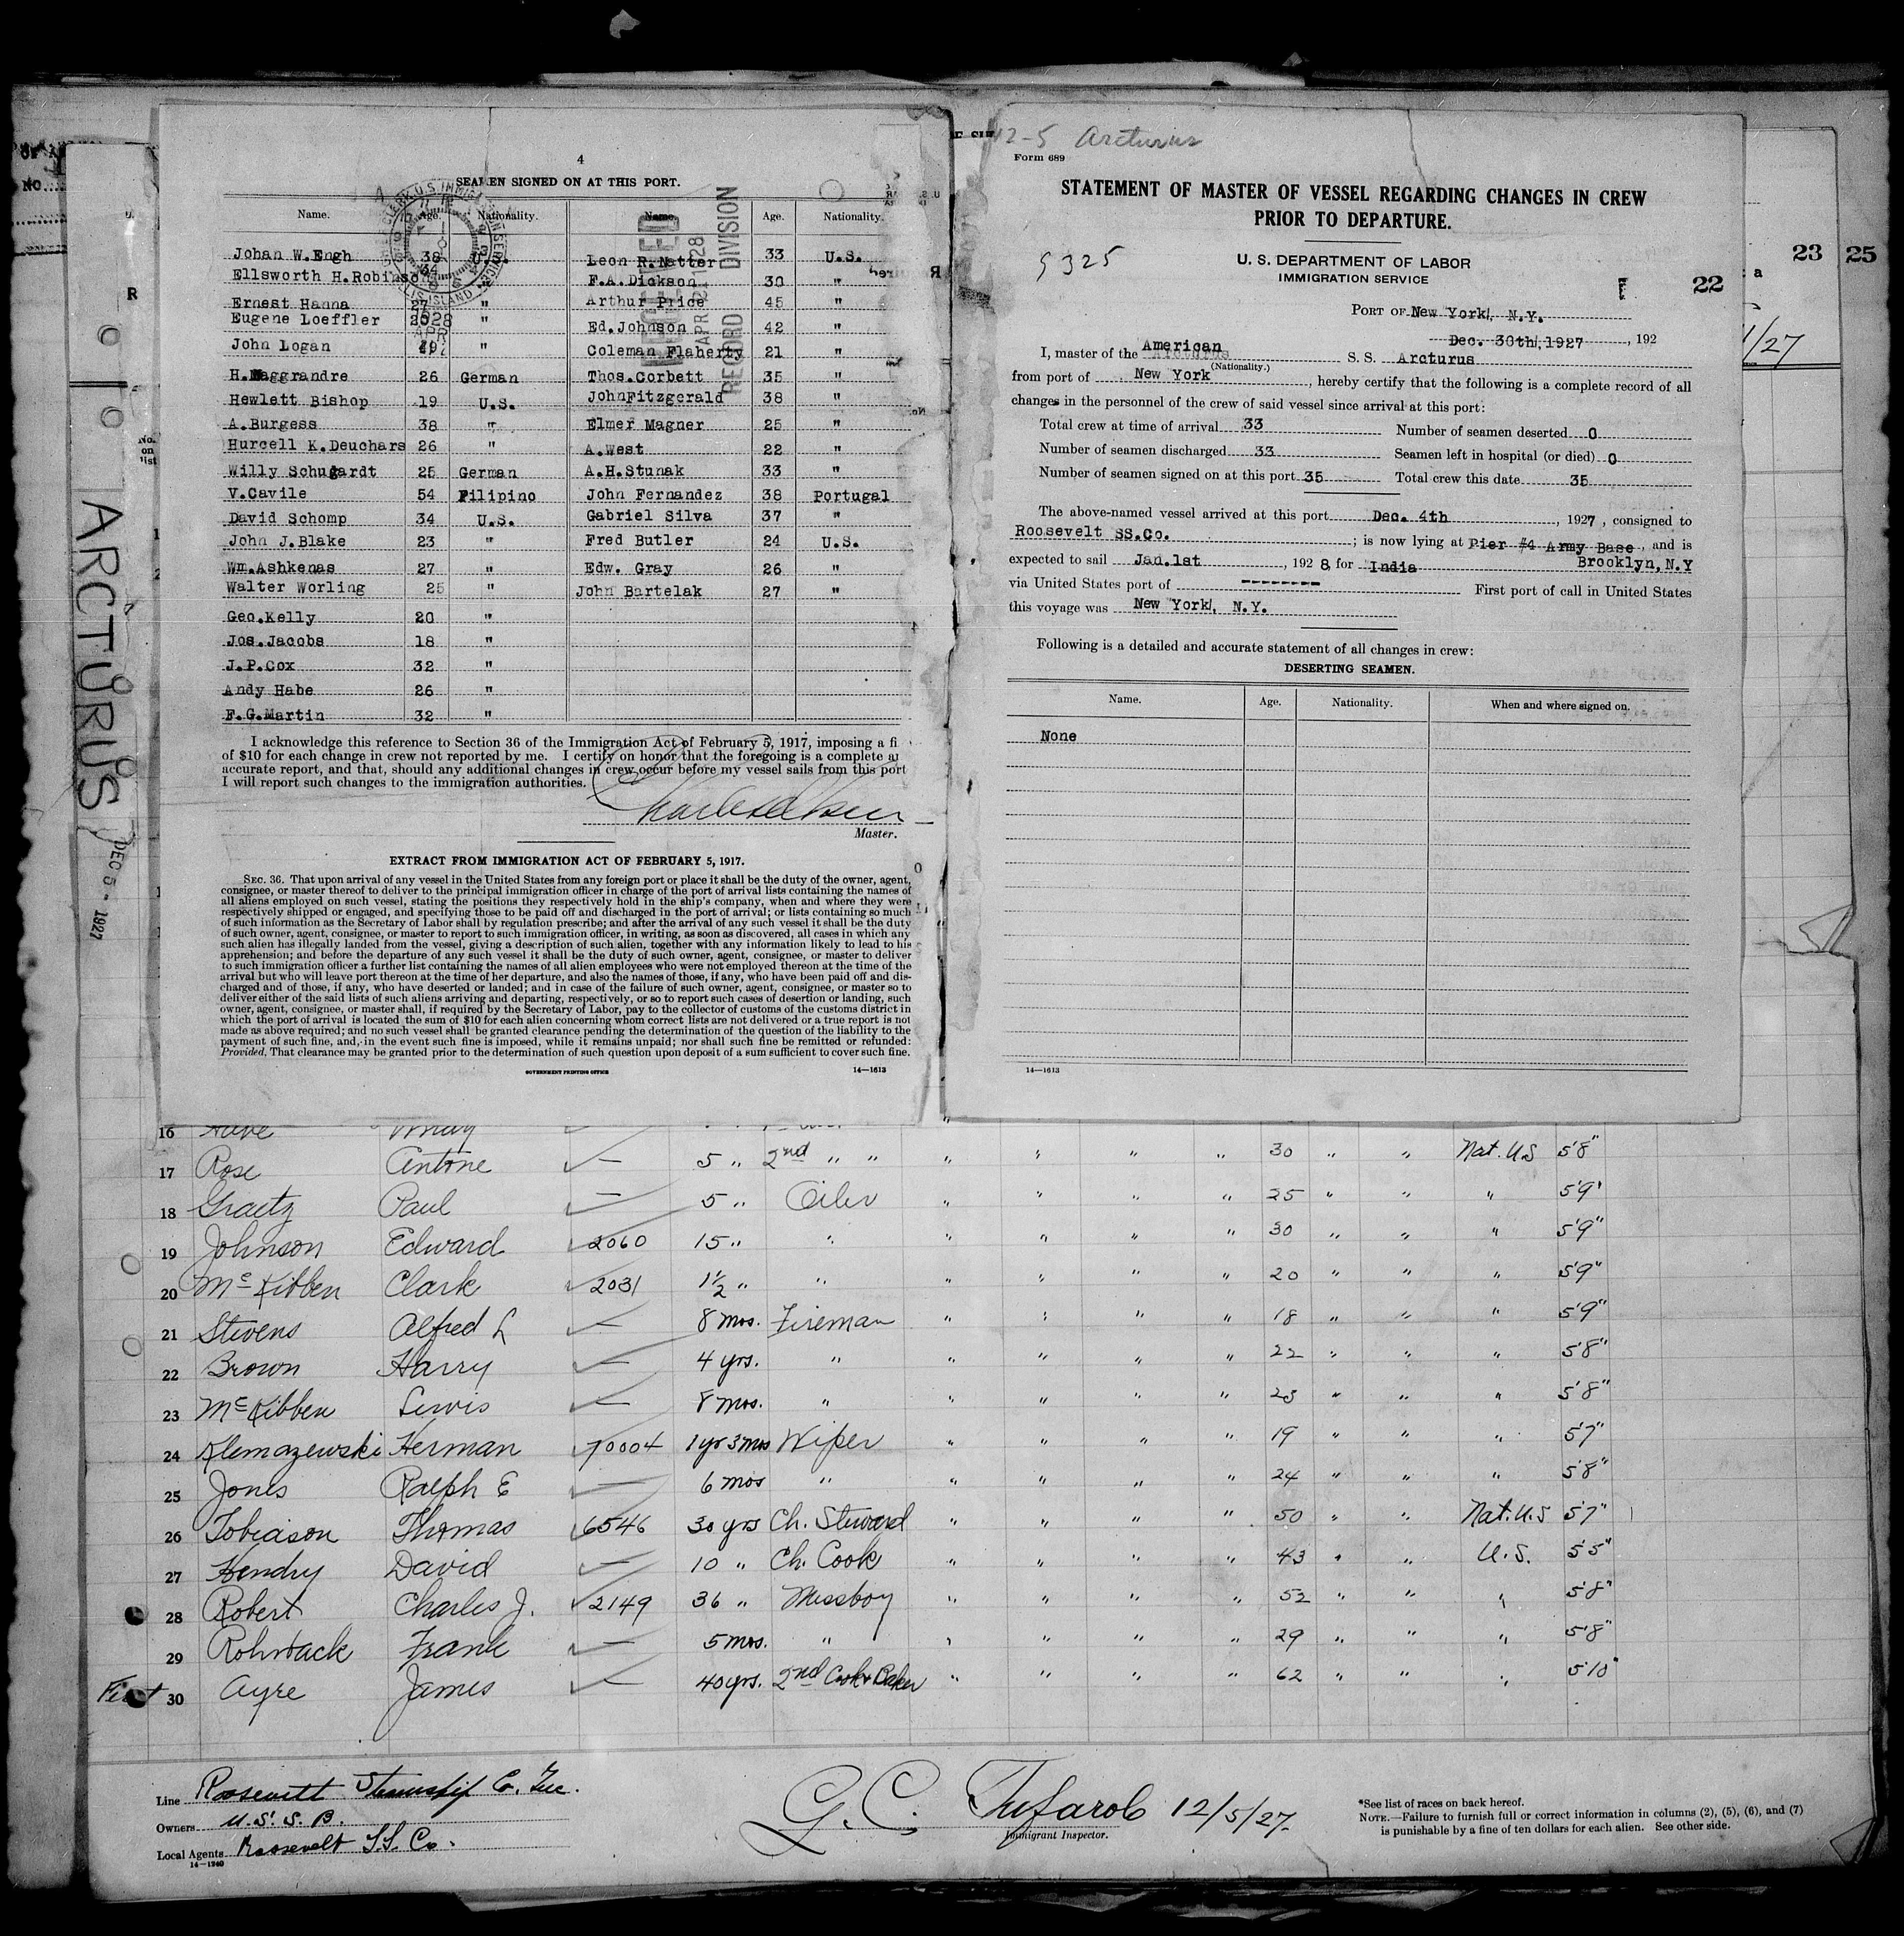 ARCTURUS
DEC 5 - 1927
4
SEAMEN SIGNED ON AT THIS PORT.
Name. Age. Nationality. Name. Age. Nationality.
Johan W.Engh 38 U.S. Leon R.Natter 33 U.S.
Ellsworth H.Robinson F.A.Dickson 30 "
Ernest Hanna 27 " Arthur Price 45 "
Eugene Loeffler " Ed.Johnson 42 "
John Logan " Coleman Flaherty 21 "
H.Maggrandre 26 German Thos.Corbett 35 "
Hewlett Bishop 19 U.S. JohnFitzgerald 38 "
A.Burgess 38 " Elmer Magner 25 "
Hurcell K.Deuchars 26 " A.West 22 "
Willy Schugardt 25 German A.H.Stunak 33 "
V.Cavile 54 Filipino John Fernandez 38 Portugal
David Schomp 34 U.S. Gabriel Silva 37 "
John J.Blake 23 " Fred Butler 24 U.S.
Wm.Ashkenas 27 " Edw. Gray 26 "
Walter Worling 25 " John Bartelak 27 "
Geo.Kelly 20 "
Jos.Jacobs 18 "
J.P.Cox 32 "
Andy Habe 26 "
F.G.Martin 32 "
RECEIVED
APR 21 1928
RECORD DIVISION
I acknowledge this reference to Section 36 of the Immigration Act of February 5, 1917, imposing a fi
of $10 for each change in crew not reported by me. I certify on honor that the foregoing is a complete a
accurate report, and that, should any additional changes in crew occur before my vessel sails from this port
I will report such changes to the immigration authorities.
Master.
EXTRACT FROM IMMIGRATION ACT OF FEBRUARY 5, 1917.
SEC. 36. That upon arrival of any vessel in the United States from any foreign port or place it shall be the duty of the owner, agent,
consignee, or master thereof to deliver to the principal immigration officer in charge of the port of arrival lists containing the names of
all aliens employed on such vessel, stating the positions they respectively hold in the ship's company, when and where they were
respectively shipped or engaged, and specifying those to be paid off and discharged in the port of arrival; or lists containing so much
of such information as the Secretary of Labor shall by regulation prescribe; and after the arrival of any such vessel it shall be the duty
of such owner, agent, consignee, or master to report to such immigration officer, in writing, as soon as discovered, all cases in which any
such alien has illegally landed from the vessel, giving a description of such alien, together with any information likely to lead to his
apprehension; and before the departure of any such vessel it shall be the duty of such owner, agent, consignee, or master to deliver
to such immigration officer a further list containing the names of all alien employees who were not employed thereon at the time of the
arrival but who will leave port thereon at the time of her departure, and also the names of those, if any, who have been paid off and dis-
charged and of those, if any, who have deserted or landed; and in case of the failure of such owner, agent, consignee, or master so to
deliver either of the said lists of such aliens arriving and departing, respectively, or so to report such cases of desertion or landing, such
owner, agent, consignee, or master shall, if required by the Secretary of Labor, pay to the collector of customs of the customs district in
which the port of arrival is located the sum of $10 for each alien concerning whom correct lists are not delivered or a true report is not
made as above required; and no such vessel shall be granted clearance pending the determination of the question of the liability to the
payment of such fine, and, in the event such fine is imposed, while it remains unpaid; nor shall such fine be remitted or refunded:
Provided, That clearance may be granted prior to the determination of such question upon deposit of a sum sufficient to cover such fine.
GOVERNMENT PRINTING OFFICE 14—1613
12-5 Arcturus
Form 689
STATEMENT OF MASTER OF VESSEL REGARDING CHANGES IN CREW
PRIOR TO DEPARTURE.
9325
U. S. DEPARTMENT OF LABOR
IMMIGRATION SERVICE
22
23
25
PORT OF New York, N.Y.
Dec. 30th, 1927, 192
I, master of the American S. S. Arcturus
(Nationality.)
from port of New York, hereby certify that the following is a complete record of all
changes in the personnel of the crew of said vessel since arrival at this port:
Total crew at time of arrival 33 Number of seamen deserted 0
Number of seamen discharged 33 Seamen left in hospital (or died) 0
Number of seamen signed on at this port 35 Total crew this date 35
The above-named vessel arrived at this port Dec. 4th, 1927, consigned to
Roosevelt SS.Co. ; is now lying at Pier #4 Army Base, and is
Brooklyn, N.Y
expected to sail Jan.1st, 1928, for India
via United States port of -------- First port of call in United States
this voyage was New York, N.Y.
Following is a detailed and accurate statement of all changes in crew:
DESERTING SEAMEN.
Name. Age. Nationality. When and where signed on.
None
14—1613
16
17 Rose Antone 5 " 2nd " " " " " " 30 " " Nat. U.S 5'8"
18 Graetz Paul 5 " Oiler " " " " 25 " " " 5'9"
19 Johnson Edward 2060 15 " " " " " " 30 " " " 5'9"
20 McKibben Clark 2031 1½ " " " " " " 20 " " " 5'9"
21 Stevens Alfred L 8 mos. Fireman " " " " 18 " " " 5'9"
22 Brown Harry 4 yrs. " " " " " 22 " " " 5'8"
23 McKibben Lewis 8 mos. " " " " " 23 " " " 5'8"
24 Klemazewski Herman 70004 1 yr 3 mos Wiper " " " " 19 " " " 5'7"
25 Jones Ralph E 6 mos " " " " " 24 " " " 5'8"
26 Tobiason Thomas 6546 30 yrs Ch. Steward " " " " 50 " " Nat. U.S 5'7"
27 Hendry David 10 " Ch. Cook " " " " 43 " " U.S. 5'5"
28 Robert Charles J. 2149 36 " Messboy " " " " 52 " " " 5'8"
29 Rohrback Frank 5 mos. " " " " " 29 " " " 5'8"
First 30 Ayre James 40 yrs. 2nd Cook & Baker " " " " 62 " " " 5'10"
Line Roosevelt Steamship Co. Inc.
Owners U.S.S.B.
Local Agents Roosevelt S.S. Co.
14—1240
G.C. Tufarolo 12/5/27
Immigrant Inspector.
*See list of races on back hereof.
NOTE.—Failure to furnish full or correct information in columns (2), (5), (6), and (7)
is punishable by a fine of ten dollars for each alien. See other side.